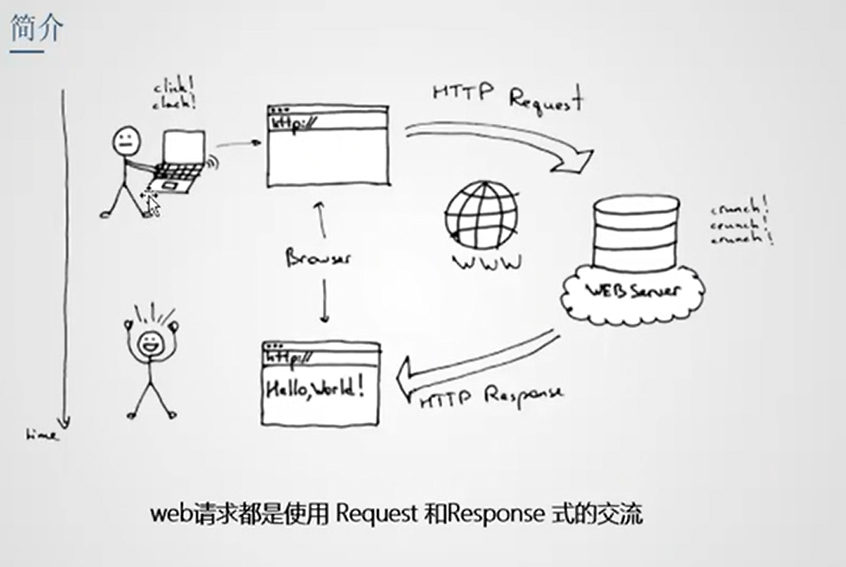 简介
click!
clack!
HTTP Request
http://
crunch!
crunch!
crunch!
WWW
Browser
WEB Server
http://
Hello, World!
HTTP Response
time
web请求都是使用 Request 和Response 式的交流